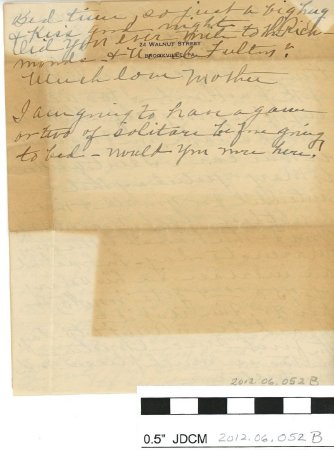 Bed time, so just a big hug
& Kiss good night.
Did you ever write to the Rich-
24 WALNUT STREET
BROOKVILLE, PA.
monds & Fulton?
Much love Mother
I am going to have a game
or two of solitare before going
to bed - would you were here!
2012.06.052B
0.5" JDCM 2012.06.052B